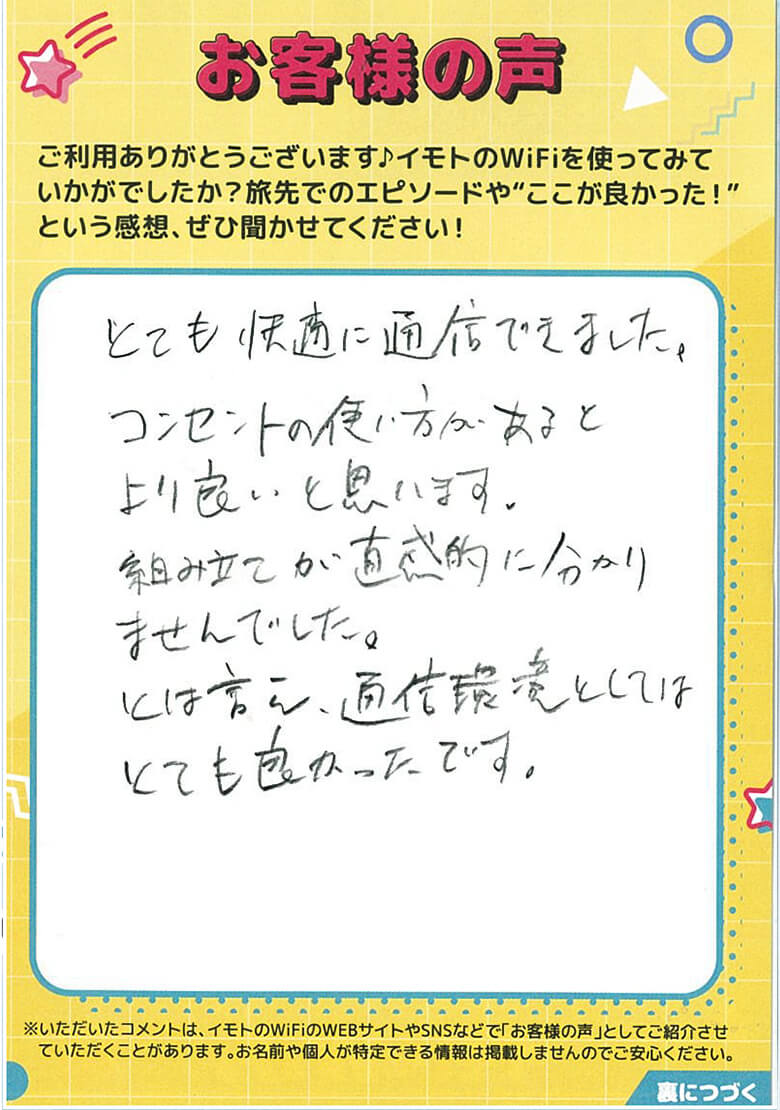 お客様の声
ご利用ありがとうございます♪イモトのWiFiを使ってみて
いかがでしたか？旅先でのエピソードや“ここが良かった！”
という感想、ぜひ聞かせてください！
とても快適に通信できました。
コンセントの使い方があると
より良いと思います。
組み立てが直感的に分かり
ませんでした。
とは言え、通信環境としては
とても良かったです。
※いただいたコメントは、イモトのWiFiのWEBサイトやSNSなどで「お客様の声」としてご紹介させ
ていただくことがあります。お名前や個人が特定できる情報は掲載しませんのでご安心ください。
裏につづく